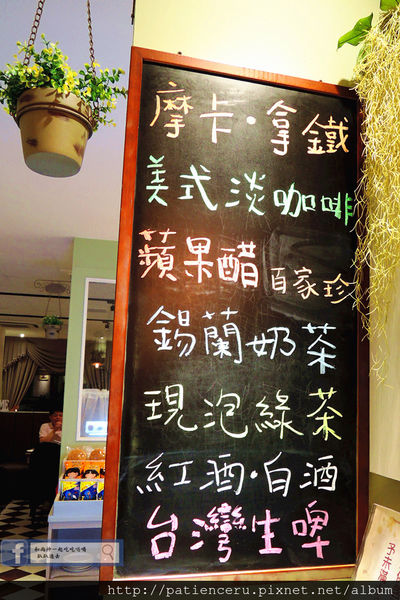 摩卡·拿鐵
美式淡咖啡
蘋果醋 百家珍
錫蘭奶茶
現泡綠茶
紅酒·白酒
台灣生啤
http://patienceru.pixnet.net/album